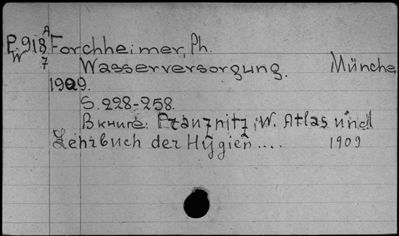 P 918 A Forchheimer, Ph.
W 7 Wasserversorgung. Münche
1909.
S. 228-258.
В книге: Prausnitz, W. Atlas und
Lehrbuch der Hygien.... 1909